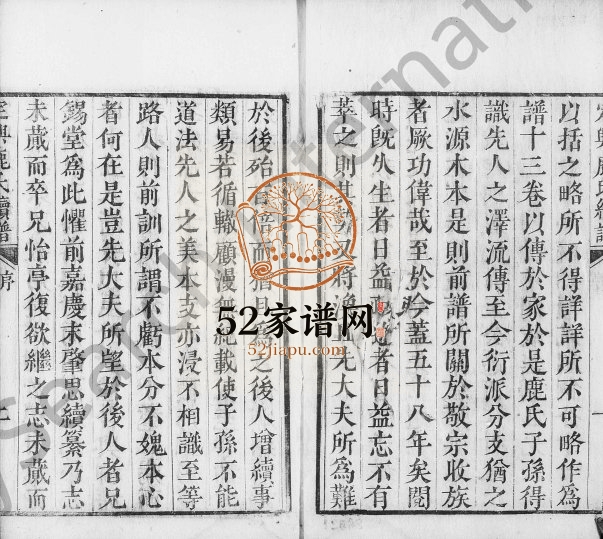 以括之略所不詳詳所不可略作為
譜十三卷以傳於家於是鹿氏子孫得
識先人之澤流傳至今衍派分支猶之
水源木本是則前譜所關於敬宗收族
者厥功偉哉至於今蓋五十八年矣閱
時既久生者日益 者日益忘不有
萃之則其勢又將渙 先大夫所為難
於後殆 倍而 之後人增續事
類易若循轍顧漫無紀載使子孫不能
道法先人之美本支亦浸不相識至等
路人則前訓所謂不虧本分不媿本心
者何在是豈先大夫所望於後人者兄
錫堂為此懼前嘉慶末肇思續纂乃志
未蕆而卒兄怡亭復欲繼之志未蕆而
定興鹿氏續譜
序
二
52家谱网
52jiapu.com
Search International